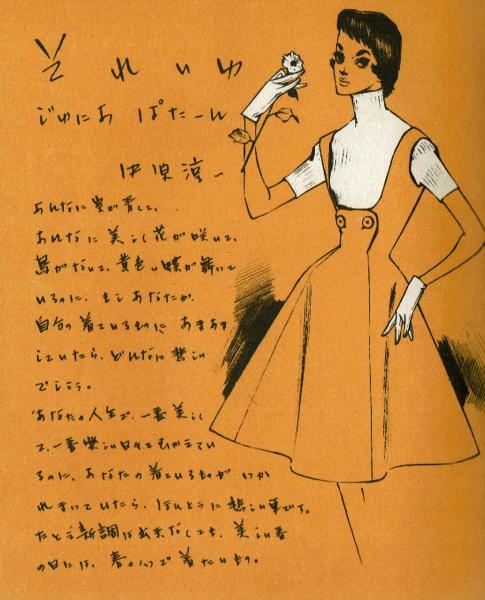 それいゆ
じゅにあ ぱたーん
中原淳一
あんなに空が青くて、
あんなに美しく花が咲いて、
鳥がないて、黄色い蝶が舞いて
いるのに、もしあなたが、
自分の着ているものに あきあき
していたら、どんなに悲しい
でしょう。
あなたの人生で、一番美しく
て、一番楽しい日々をむかえてい
るのに、あなたの着ているものが いか
れきっていたら、ほんとうに悲しい事です。
たとえ新調は出来なくても、美しい春
の日には、春の 着たいもの。